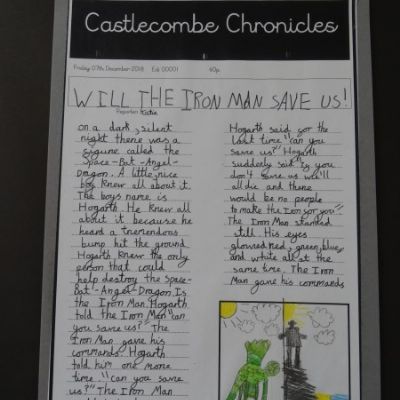 Castlecombe Chronicles
Friday 07th December 2018 Edi 00001 40p
WILL THE IRON MAN SAVE US!
Reporter:
on a dark, silent
night there was a
figure called the
Space-Bat-Angel-
Dragon. A little nice
boy knew all about it.
The boys name is
Hogarth. He knew all
about it because he
heard a tremendous
bump hit the ground.
Hogarth knew the only
person that could
help destroy the Space-
Bat-Angel-Dragon Is
the Iron Man. Hogarth
told the Iron Man "can
you save us?" The
Iron Man gave his
commands. Hogarth
told him one more
time. "can you save
us?" The Iron Man
Hogarth said for the
last time "can you
save us?" Hogarth
suddenly said "If you
don't save us we'll
all die and there
would be no people
to make the Iron for you"
The Iron Man
still. His eyes
glowed red, green, blue
and white all at the
same time. The Iron
Man gave his commands